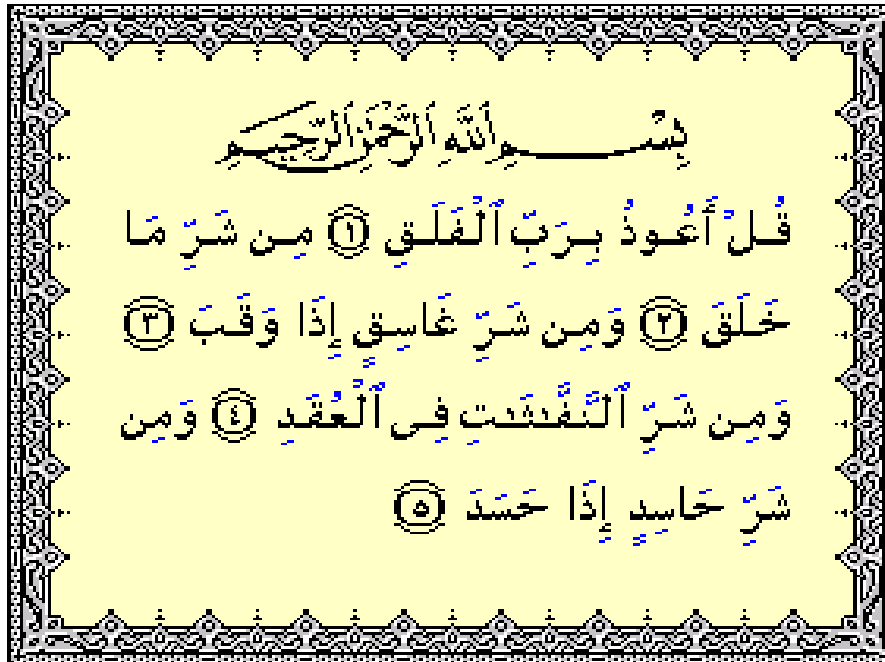 بِسْمِ اللَّهِ الرَّحْمَنِ الرَّحِيمِ
قُلْ أَعُوذُ بِرَبِّ ٱلْفَلَقِ ١ مِن شَرِّ مَا
خَلَقَ ٢ وَمِن شَرِّ غَاسِقٍ إِذَا وَقَبَ ٣
وَمِن شَرِّ ٱلنَّفَّـٰثَـٰتِ فِى ٱلْعُقَدِ ٤ وَمِن
شَرِّ حَاسِدٍ إِذَا حَسَدَ ٥